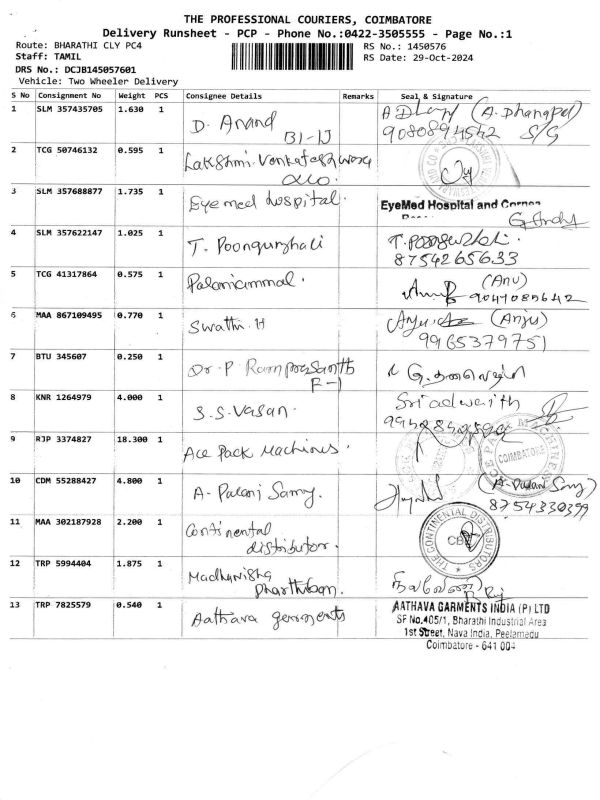 THE PROFESSIONAL COURIERS, COIMBATORE
Delivery Runsheet - PCP - Phone No.:0422-3505555 - Page No.:1
Route: BHARATHI CLY PC4
RS No.: 1450576
Staff: TAMIL
RS Date: 29-Oct-2024
DRS No.: DCJB145057601
Vehicle: Two Wheeler Delivery
S No Consignment No Weight PCS Consignee Details Remarks Seal & Signature
1 SLM 357435705 1.630 1 D. Anand (A. Dhanapal)
B1-IJ 9080894542 S/G
2 TCG 50746132 0.595 1 Lakshmi
3 SLM 357688877 1.735 1 Eye med hospital. EyeMed Hospital and Cornea
4 SLM 357622147 1.025 1 T. Poongunzhali
8754265633
5 TCG 41317864 0.575 1 Palaniammal. (Anu)
9047085642
6 MAA 867109495 0.770 1 Swathi. H (Anju)
9965379751
7 BTU 345607 0.250 1 Dr. P. Ramprasanth
F-1
8 KNR 1264979 4.000 1 S.S. Vasan. Sriadwaith
9 RJP 3374827 18.300 1 Ace Pack Machines. ACE PACK MACHINES COIMBATORE
10 CDM 55288427 4.800 1 A. Palani Samy. (A. Palani Samy)
8754330399
11 MAA 302187928 2.200 1 Continental THE CONTINENTAL DISTRIBUTORS
distributor.
12 TRP 5994404 1.875 1 Madhanisha
Parthiban.
13 TRP 7825579 0.540 1 Aathava germents AATHAVA GARMENTS INDIA (P) LTD
SF No.405/1, Bharathi Industrial Area
1st Street, Nava India, Peelamedu
Coimbatore - 641 004